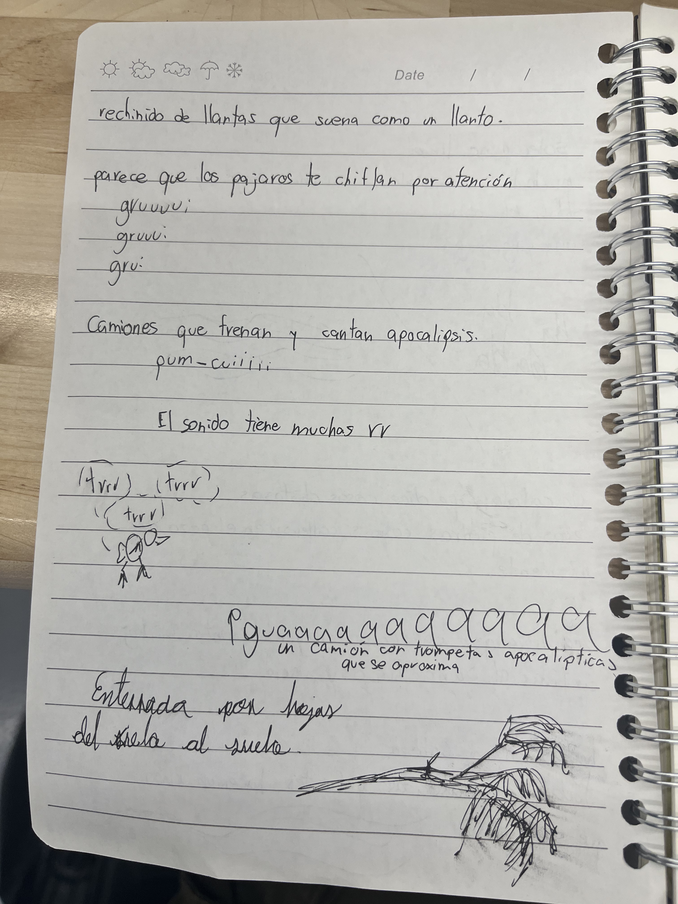 Date / /
rechinido de llantas que suena como un llanto.
parece que los pajaros te chiflan por atención
gruuuui
gruui
grui
Camiones que frenan y cantan apocalipsis.
pum-cuiiiii
El sonido tiene muchas rr
(trrr) (trrr)
(trrr)
Pguaaaaaaaaaa
un camión con trompetas apocalípticas
que se aproxima
Enterrada por hojas
del suelo al suelo.